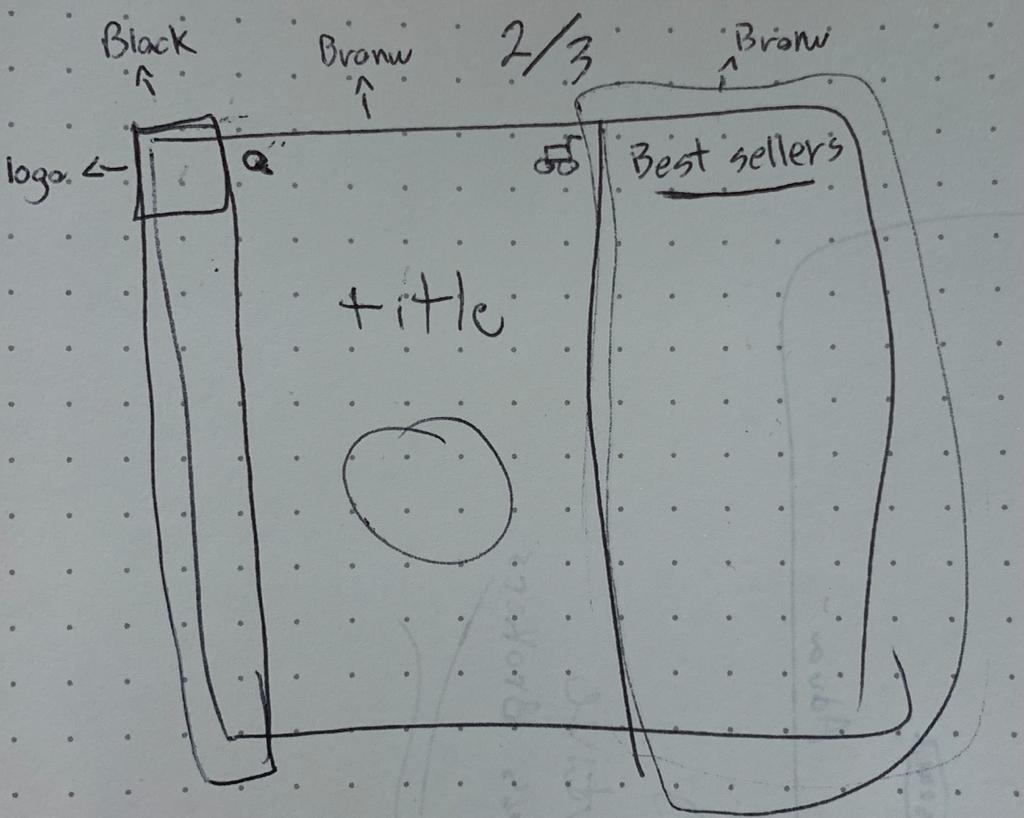 Black
Bronw
2/3
Bronw
logo.
Best sellers
title